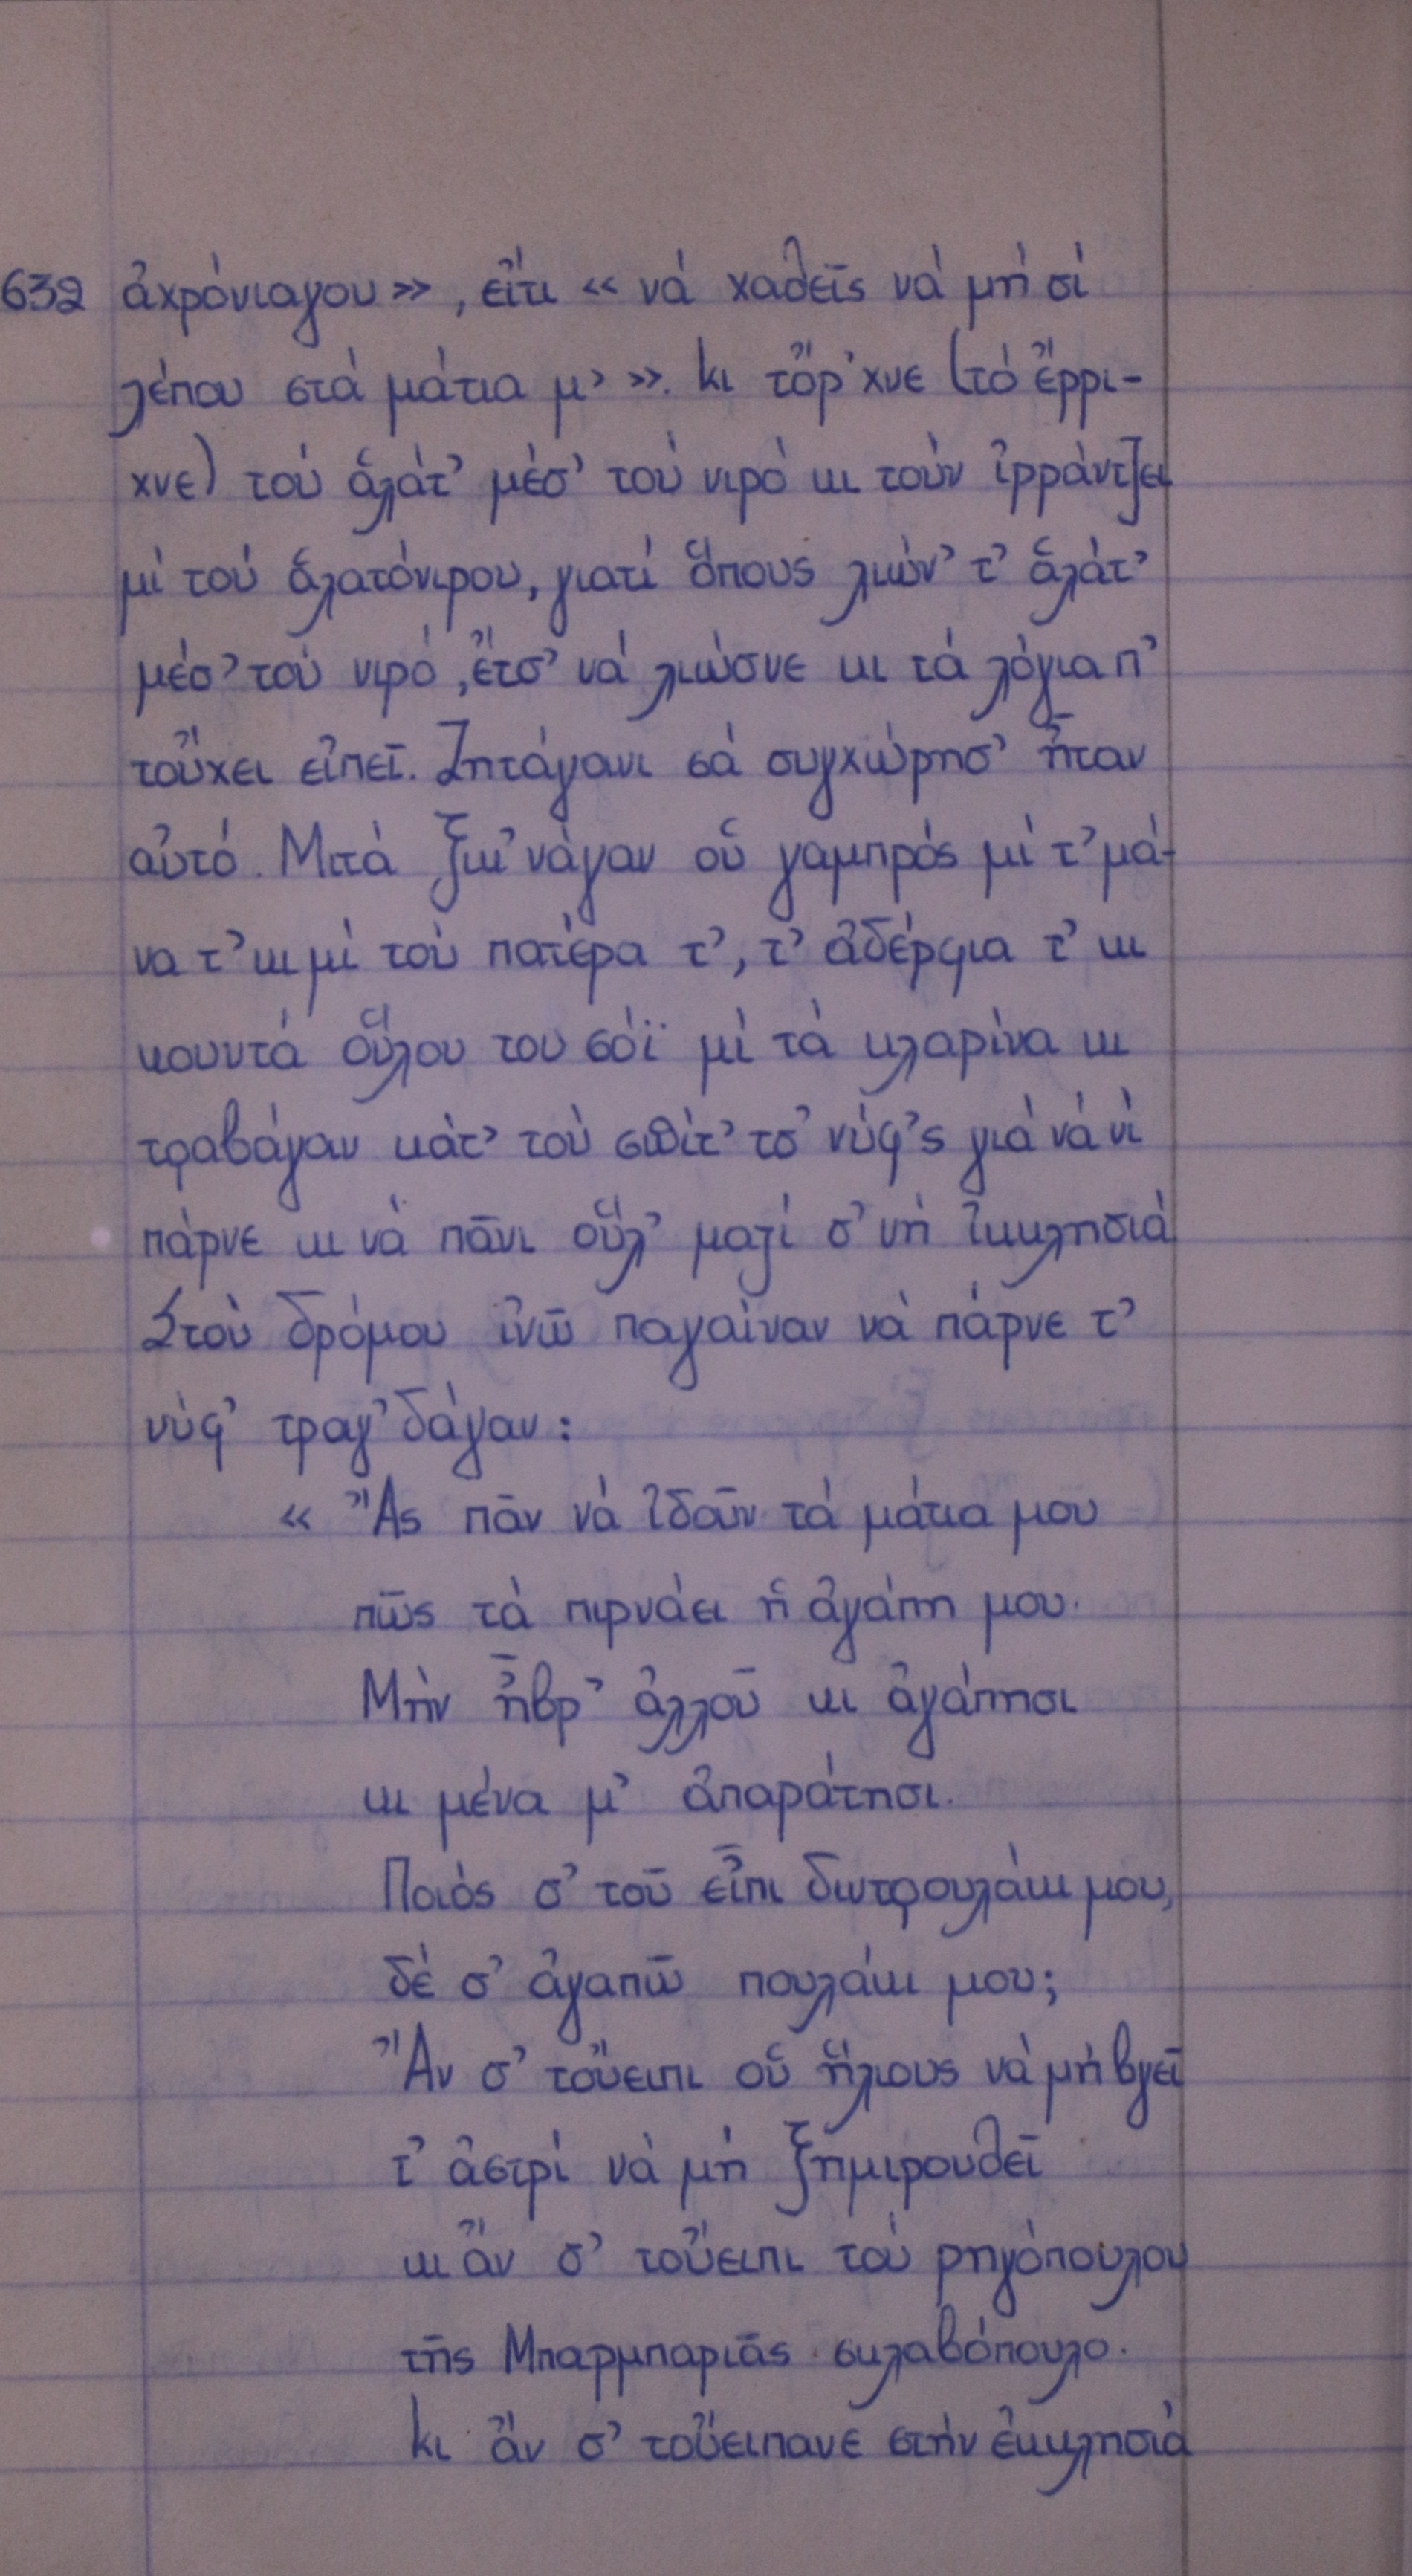 632 ἀχρόνιαγου», εἴτι «νά χαθεῖς νά μή σί
λέπου στά μάτια μ'». κι τὄρ'χνε (τό ἔρρι-
χνε) τού ἁλάτ' μέσ' τού νιρό κι τούν ἰρράντζει
μί τού ἁλατόνιρου, γιατί ὅπους λιών' τ' ἁλάτ'
μέσ' τού νιρό, ἔτσ' νά λιώσνε κι τά λόγια π'
τοὔχει εἰπεῖ. Ζητάγανι σά συγχώρησ' ἦταν
αὐτό. Μιτά ξικ'νάγαν οὑ γαμπρός μί τ' μά-
να τ' κι μί τού πατέρα τ', τ' ἀδέρφια τ' κι
κουντά οὕλου του σόϊ μί τά κλαρίνα κι
τραβάγαν κάτ' τού σπίτ' τσ' νύφ'ς γιά νά νί
πάρνε κι νά πᾶνι οὕλ' μαζί σ' νή ἰκκλησιά
Στού δρόμου ἰνῶ παγαίναν νά πάρνε τ'
νύφ' τραγ'δάγαν:
« Ἄς πᾶν νά ἰδοῦν τά μάτια μου
πῶς τά πιρνάει ἡ ἀγάπη μου.
Μήν ἦβρ' ἀλλοῦ κι ἀγάπησι
κι μένα μ' ἀπαράτησι.
Ποιός σ' τοῦ εἶπι διντρουλάκι μου,
δέ σ' ἀγαπῶ πουλάκι μου;
Ἄν σ' τοὔειπι οὑ ἥλιους νά μή βγεῖ
τ' ἀστρί νά μή ξημιρουθεῖ
κι ἄν σ' τοὔειπι τού ρηγόπουλου
τῆς Μπαρμπαριᾶς σκλαβόπουλο.
κι ἄν σ' τοὔειπανε στήν ἐκκλησιά